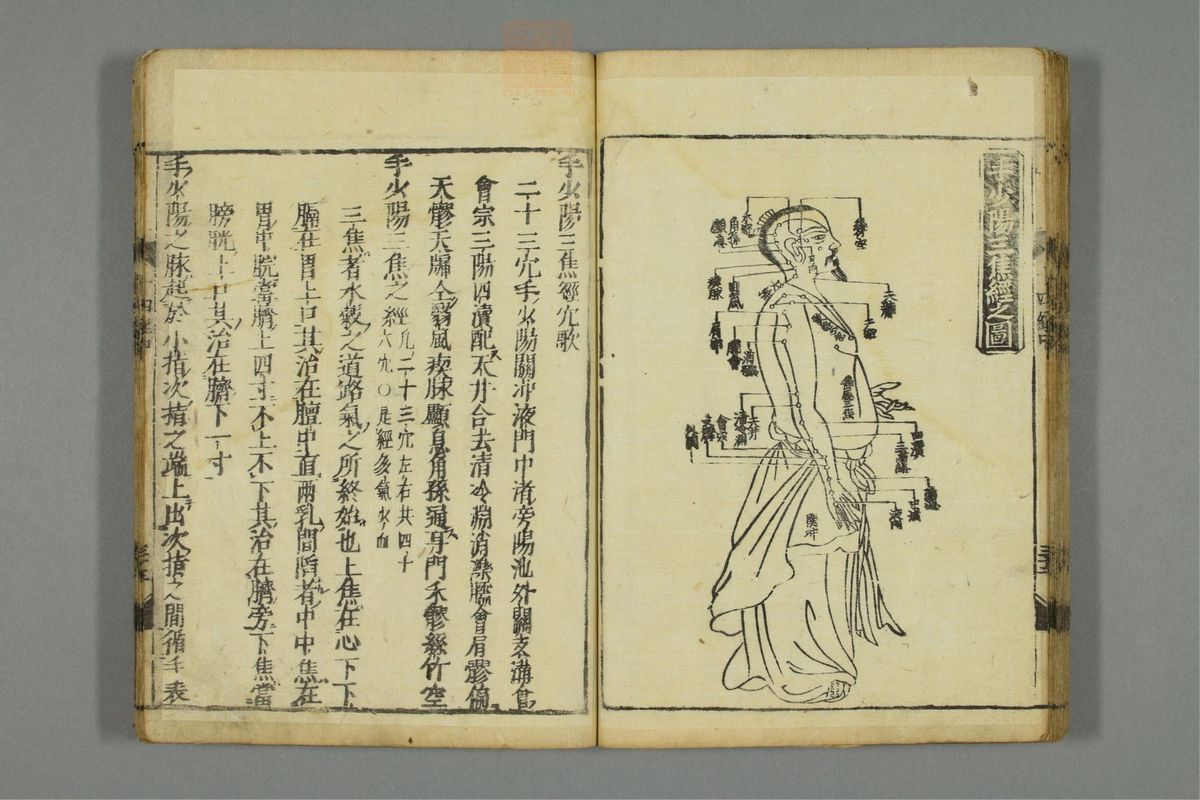 手少陽三焦經之圖
絲竹空
角孫
顱息
瘈脉
翳風
天牖
天髎
肩髎
臑會
消濼
清冷淵
天井
四瀆
三陽絡
會宗
支溝
外關
陽池
中渚
液門
關冲
手少陽三焦經穴歌
二十三穴手少陽關冲液門中渚旁陽池外關支溝會
會宗三陽四瀆配天井合去清冷淵消濼臑會肩髎偏
天髎天牖全翳風瘈脉顱息角孫通耳門禾髎絲竹空
手少陽三焦之經凡二十三穴左右共四十
六穴○是經多氣少血
三焦者水穀之道路氣之所終始也上焦在心下下
膈在胃上口其治在膻中直兩乳間陷者中中焦在
胃中脘當臍上四寸不上不下其治在臍旁下焦當
膀胱上口其治在臍下一寸
手少陽之脉起於小指次指之端上出次指之間循手表